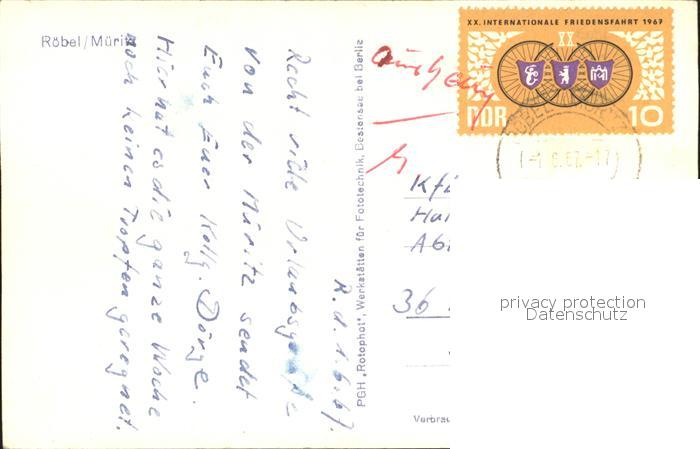 Röbel/Müritz
R. d. 1.6.67.
Recht viele Urlaubsgrüße
von der Müritz sendet
Euch Euer Kollg. Dörge.
Hier hat es die ganze Woche
noch keinen Tropfen geregnet.
PGH „Rotophot“, Werkstätten für Fototechnik, Bestensee bei Berlin
XX. INTERNATIONALE FRIEDENSFAHRT 1967
XX.
DDR 10
-1.6.67.-17
36
privacy protection
Datenschutz
Verbrau